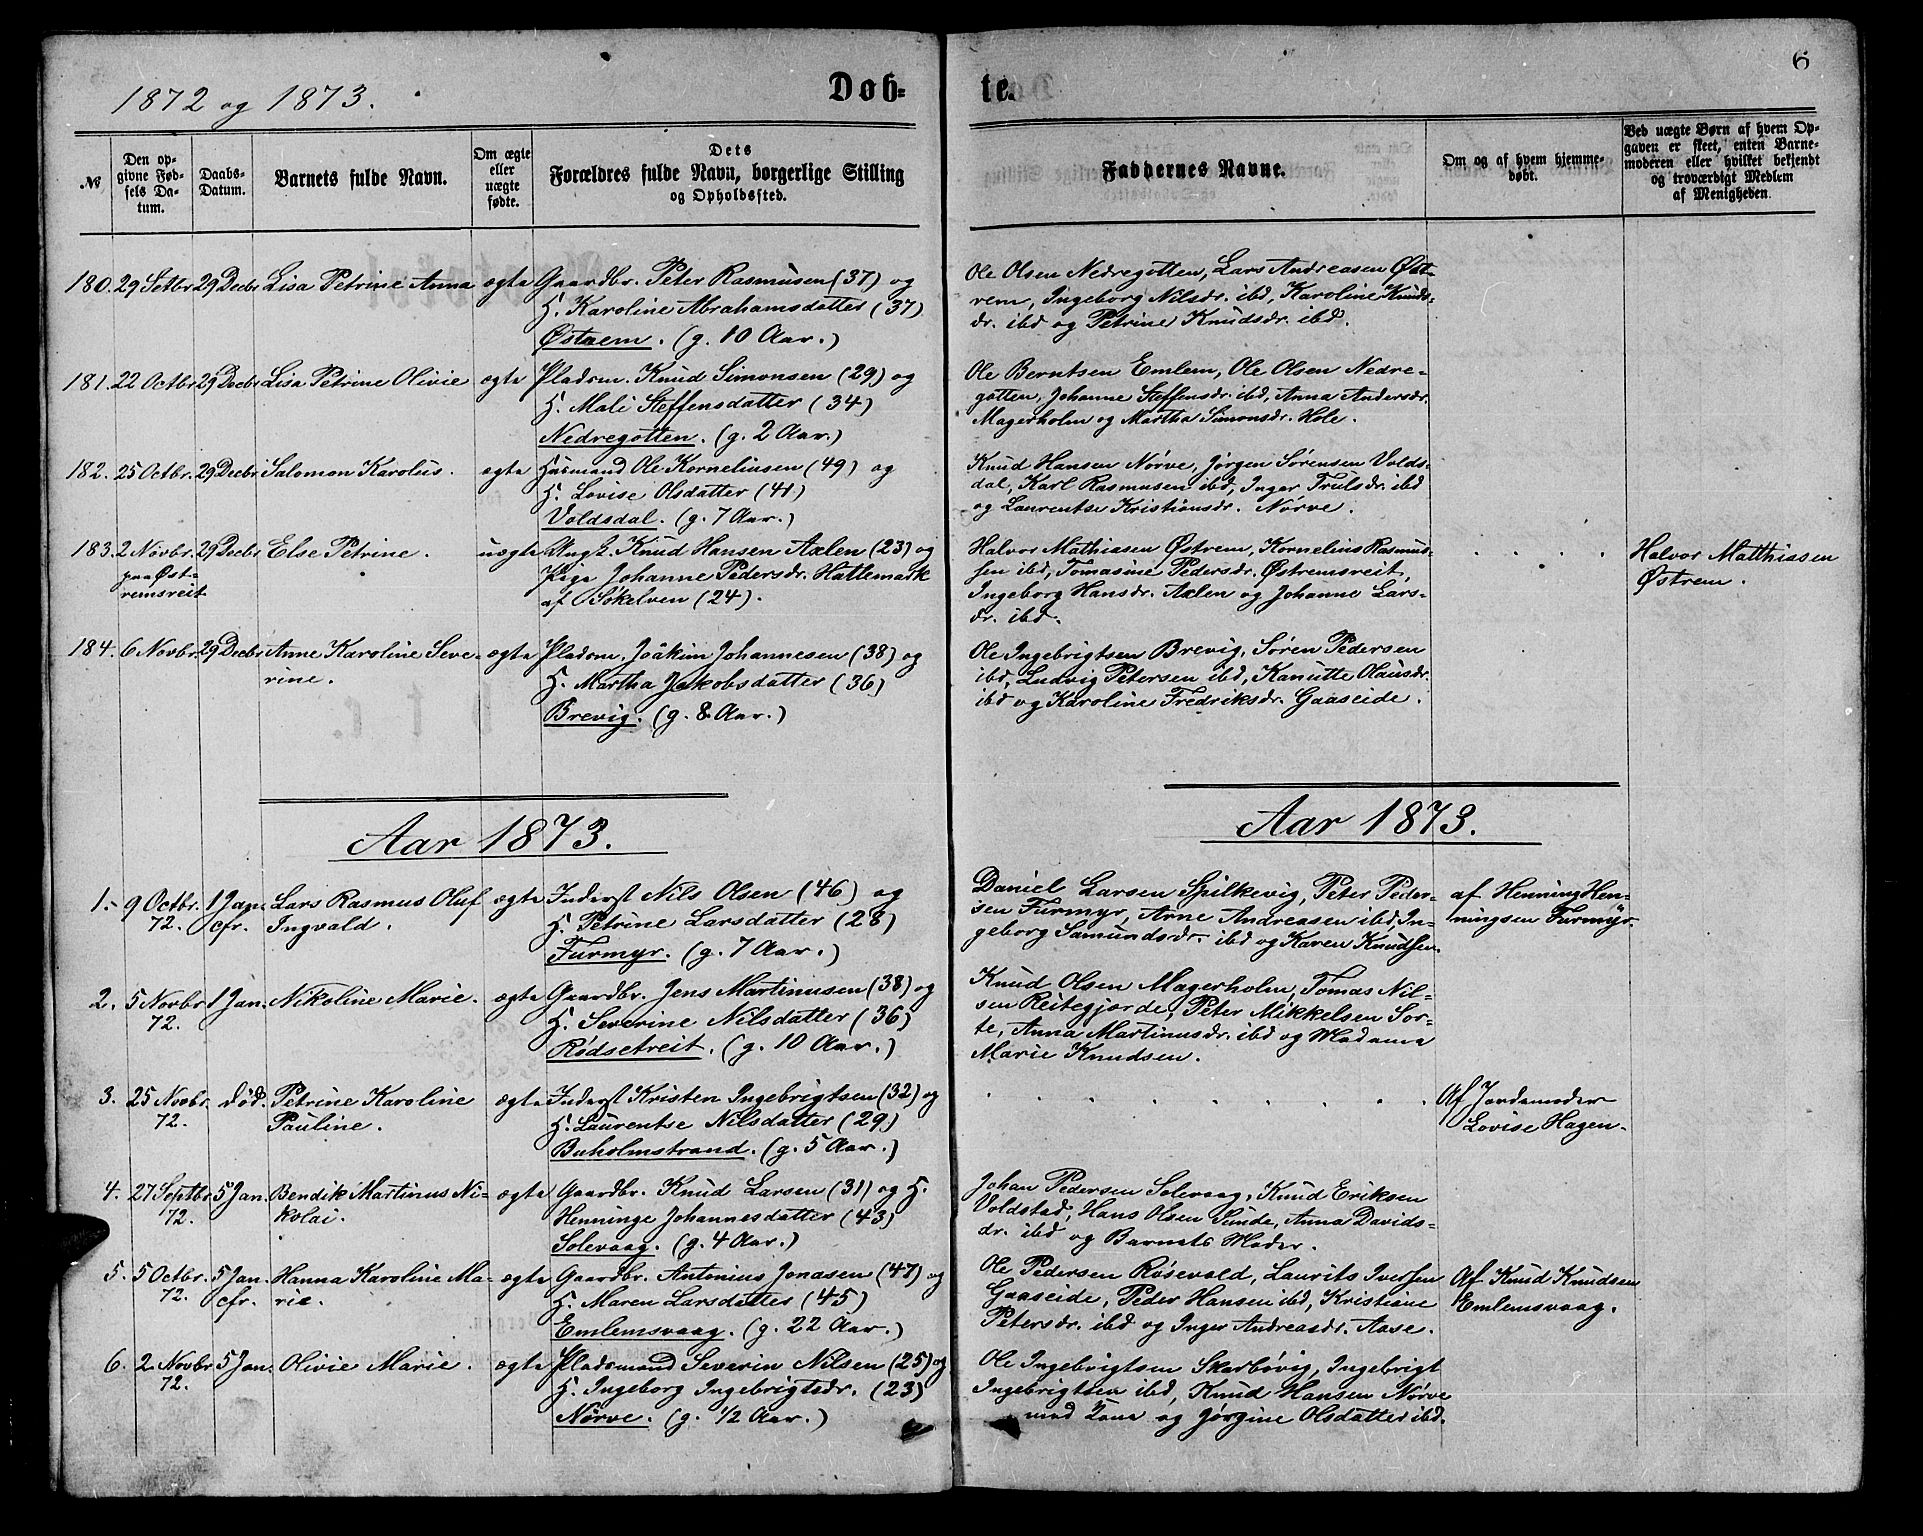 1872 og 1873.
Døb-
te.
6
№
Den op-
givne Fød-
sels Da-
tum.
Daabs-
Datum.
Barnets fulde Navn.
Om ægte
eller
uægte
fødte.
Dets
Forældres fulde Navn, borgerlige Stilling
og Opholdssted.
Faddernes Navne.
Om og af hvem hjemme-
døbt.
Ved uægte Børn af hvem Op-
gaven er skeet, enten Barne-
moderen eller hvilket bekjendt
og troværdigt Medlem
af Menigheden.
180. 29 Setbr 29 Decbr Lisa Petrine Anna ægte Gaardbr. Peter Rasmusen (37) og
H. Karoline Abrahamsdatter (37)
Østrem. (g. 10 Aar.)
Ole Olsen Nedregotten, Lars Andreasen Øst-
rem, Ingeborg Nilsdr. ibd, Karoline Knuds-
dr. ibd og Petrine Knudsdr. ibd.
181. 22 Octbr 29 Decbr Lisa Petrine Olivie ægte Pladsm. Knud Simonsen (29) og
H. Mali Steffensdatter (34)
Nedregotten. (g. 2 Aar.)
Ole Berntsen Emlem, Ole Olsen Nedre-
gotten, Johanne Steffensdr. ibd, Anna Andersdr.
Magerholm og Martha Simonsdr. Hole.
182. 25 Octbr. 29 Decbr Salomon Karolus. ægte Husmand Ole Korneliusen (49) og
H. Lovise Olsdatter (41)
Voldsdal. (g. 7 Aar.)
Knud Hansen Nørve, Jørgen Sørensen Volds-
dal, Karl Rasmusen ibd, Inger Trulsdr. ibd
og Laurentse Kristiansdr. Nørve.
183. 2 Novbr. 29 Decbr Else Petrine. uægte Ungk. Knud Hansen Axlen (23) og
paa Øst-
remsreit
Pige Johanne Pedersdr. Hattemark
af Søkelven (24).
Halvor Mathiasen Østrem, Kornelius Rasmus-
sen ibd, Tomasine Pedersdr. Østremsreit,
Ingeborg Hansdr. Axlen og Johanne Lars-
dr. ibd.
Halvor Matthiasen
Østrem.
184. 6 Novbr. 29 Decbr Anne Karoline Seve-
rine.
ægte Pladsm. Joakim Johannesen (38) og
H. Martha Jakobsdatter (36)
Brevig. (g. 8 Aar.)
Ole Ingebrigtsen Brevig, Søren Pedersen
ibd, Ludvig Petersen ibd, Kanutte Olausdr.
ibd og Karoline Fredriksdr. Gaaseide.
Aar 1873.
Aar 1873.
1. 9 Octbr. 1 Jan. Lars Rasmus Oluf ægte Inderst Nils Olsen (46) og
72. cfr. Ingvald. H. Petrine Larsdatter (28)
Furmyr. (g. 7 Aar.)
Daniel Larsen Spilkevig, Peter Peder-
sen Furmyr, Arne Andreasen ibd, In-
geborg Samundsdr. ibd og Karen Knudsen.
af Henning Hen-
ningsen Furmyr.
2. 5 Novbr 1 Jan. Nikoline Marie. ægte Gaardbr. Jens Martinusen (38) og
72. H. Severine Nilsdatter (36)
Rødsetreit. (g. 10 Aar.)
Knud Olsen Magerholm, Tomas Nil-
sen Reitegjorde, Peter Mikkelsen Sor-
te, Anna Martinusdr. ibd og Madama
Marie Knudsen.
3. 25 Novbr. død. Petrine Karoline ægte Inderst Kristen Ingebrigtsen (32) og
72. Pauline. H. Laurentse Nilsdatter (29)
Buholmstrand. (g. 5 Aar.)
Af Jordemoder
Lovise Hagen.
4. 27 Septbr 5 Jan. Bendik Martinus Ni- ægte Gaardbr. Knud Larsen (31) og H.
72. kolai. Henninge Johannesdatter (43)
Solevaag. (g. 4 Aar.)
Johan Pedersen Solevaag, Knud Eriksen
Voldstad, Hans Olsen Sunde, Anna Davids-
dr. ibd og Barnets Moder.
5. 5 Octbr. 5 Jan. Hanna Karoline Ma- ægte Gaardbr. Antonius Jonasen (47) og
72. cfr. rie. H. Maren Larsdatter (45)
Emlemsvaag. (g. 22 Aar.)
Ole Pedersen Røsevold, Laurits Iversen
Gaaseide, Peder Hansen ibd, Kristiane
Petersdr. ibd og Inger Andreasdr. Aase.
Af Knud Knudsen
Emlemsvaag.
6. 2 Novbr 5 Jan. Olivie Marie. ægte Pladsmand Severin Nilsen (25) og
72. H. Ingeborg Ingebrigtsdr. (23)
Nørve. (g. 1/2 Aar.)
Ole Ingebrigtsen Skarbøvig, Ingebrigt
Ingebrigtsen ibd, Knud Hansen Nørve
med Kone og Jørgine Olsdatter ibd.